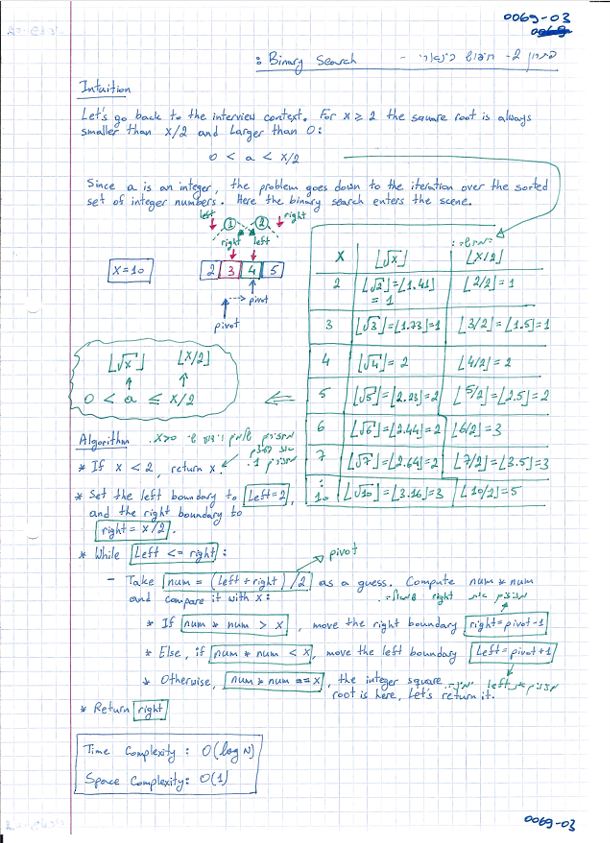 0069-03
פתרון 2- חיפוש בינארי - Binary Search:
Intuition
Let's go back to the interview context. For x ≥ 2 the square root is always
smaller than x/2 and larger than 0:
0 < a < x/2
Since a is an integer, the problem goes down to the iteration over the sorted
set of integer numbers. Here the binary search enters the scene.
left 1 2 right
right left
x=10 2 3 4 5
pivot
pivot
x ⌊√x⌋ ⌊x/2⌋
2 ⌊√2⌋=⌊1.41⌋ ⌊2/2⌋=1
= 1
3 ⌊√3⌋=⌊1.73⌋=1 ⌊3/2⌋=⌊1.5⌋=1
4 ⌊√4⌋=2 ⌊4/2⌋=2
5 ⌊√5⌋=⌊2.23⌋=2 ⌊5/2⌋=⌊2.5⌋=2
6 ⌊√6⌋=⌊2.44⌋=2 ⌊6/2⌋=3
7 ⌊√7⌋=⌊2.64⌋=2 ⌊7/2⌋=⌊3.5⌋=3
:
10 ⌊√10⌋=⌊3.16⌋=3 ⌊10/2⌋=5
⌊√x⌋ ⌊x/2⌋
0 < a ≤ x/2
Algorithm
x>0
* If x < 2, return x.
1
* Set the left boundary to Left=2,
and the right boundary to
right = x/2.
* While Left <= right:
pivot
- Take num = (Left + right)/2 as a guess. Compute num * num
and compare it with x:
right
* If num * num > x, move the right boundary right=pivot-1
* Else, if num * num < x, move the left boundary Left=pivot+1
left
* Otherwise, num * num == x, the integer square
root is here, Let's return it.
* Return right
Time Complexity: O(log N)
Space Complexity: O(1)
0069-03